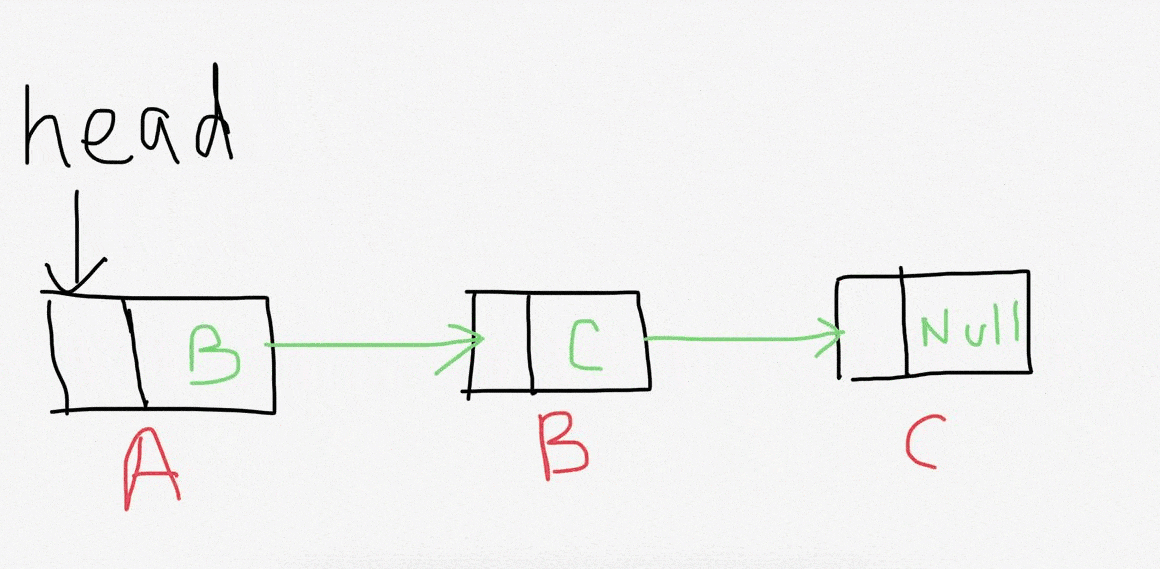 head
B C Null
A B C